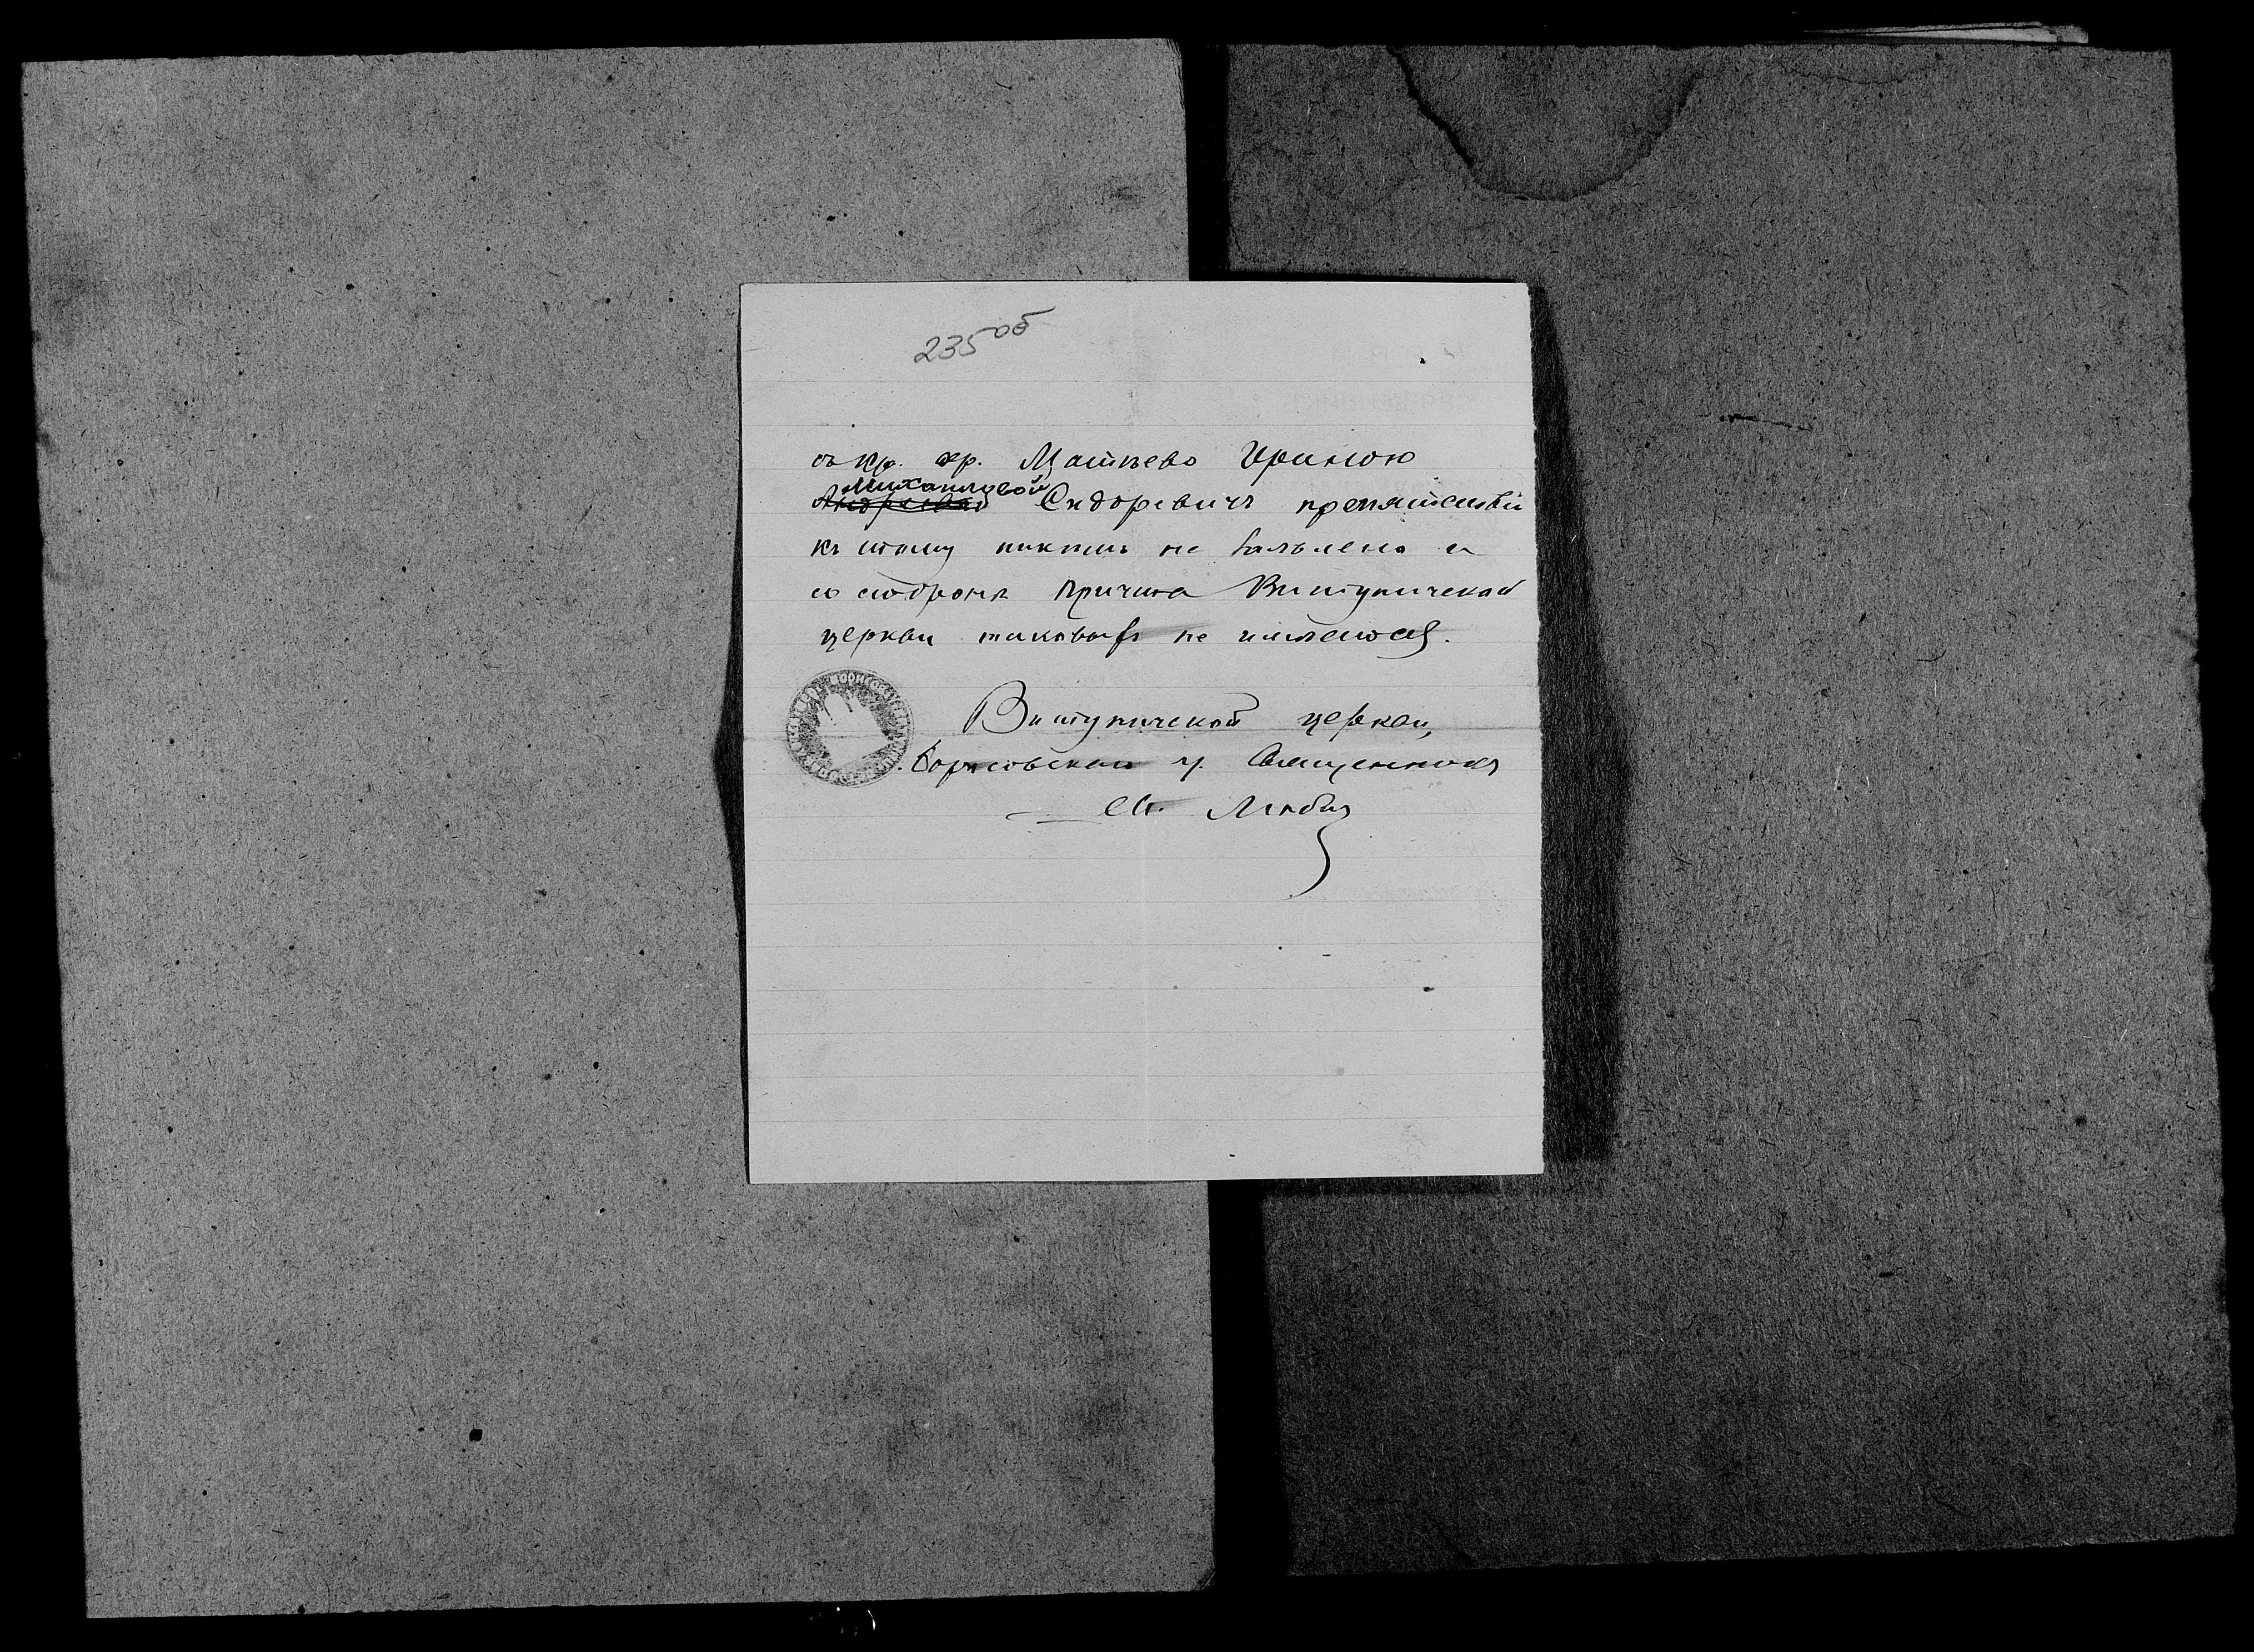 235об
съ кр. хр. Матњево Ириною
Михаиловой
Андреевой Сидоревичъ препятствiй
къ этому никѣмъ не заявлено и
со стороны причта Виступичской
церкви таковыхъ не имѣется.
Виступичской церкви,
Борисовскаго у. Священникъ